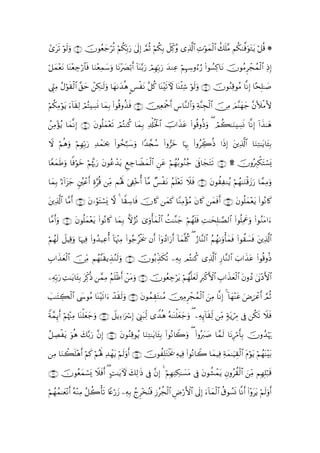 ۞ قُلْ يَتَوَفَّىٰكُم مَّلَكُ ٱلْمَوْتِ ٱلَّذِى وُكِّلَ بِكُمْ ثُمَّ إِلَىٰ رَبِّكُمْ تُرْجَعُونَ ۝ وَلَوْ تَرَىٰٓ
إِذِ ٱلْمُجْرِمُونَ نَاكِسُوا۟ رُءُوسِهِمْ عِندَ رَبِّهِمْ رَبَّنَآ أَبْصَرْنَا وَسَمِعْنَا فَٱرْجِعْنَا نَعْمَلْ
صَٰلِحًا إِنَّا مُوقِنُونَ ۝ وَلَوْ شِئْنَا لَءَاتَيْنَا كُلَّ نَفْسٍ هُدَىٰهَا وَلَٰكِنْ حَقَّ ٱلْقَوْلُ مِنِّى
لَأَمْلَأَنَّ جَهَنَّمَ مِنَ ٱلْجِنَّةِ وَٱلنَّاسِ أَجْمَعِينَ ۝ فَذُوقُوا۟ بِمَا نَسِيتُمْ لِقَآءَ يَوْمِكُمْ
هَٰذَآ إِنَّا نَسِينَٰكُمْ ۖ وَذُوقُوا۟ عَذَابَ ٱلْخُلْدِ بِمَا كُنتُمْ تَعْمَلُونَ ۝ إِنَّمَا يُؤْمِنُ
بِـَٔايَٰتِنَا ٱلَّذِينَ إِذَا ذُكِّرُوا۟ بِهَا خَرُّوا۟ سُجَّدًا وَسَبَّحُوا۟ بِحَمْدِ رَبِّهِمْ وَهُمْ لَا
يَسْتَكْبِرُونَ ۩ ۝ تَتَجَافَىٰ جُنُوبُهُمْ عَنِ ٱلْمَضَاجِعِ يَدْعُونَ رَبَّهُمْ خَوْفًا وَطَمَعًا
وَمِمَّا رَزَقْنَٰهُمْ يُنفِقُونَ ۝ فَلَا تَعْلَمُ نَفْسٌ مَّآ أُخْفِىَ لَهُم مِّن قُرَّةِ أَعْيُنٍ جَزَآءًۢ بِمَا
كَانُوا۟ يَعْمَلُونَ ۝ أَفَمَن كَانَ مُؤْمِنًا كَمَن كَانَ فَاسِقًا ۚ لَّا يَسْتَوُۥنَ ۝ أَمَّا ٱلَّذِينَ
ءَامَنُوا۟ وَعَمِلُوا۟ ٱلصَّٰلِحَٰتِ فَلَهُمْ جَنَّٰتُ ٱلْمَأْوَىٰ نُزُلًۢا بِمَا كَانُوا۟ يَعْمَلُونَ ۝ وَأَمَّا
ٱلَّذِينَ فَسَقُوا۟ فَمَأْوَىٰهُمُ ٱلنَّارُ ۖ كُلَّمَآ أَرَادُوٓا۟ أَن يَخْرُجُوا۟ مِنْهَآ أُعِيدُوا۟ فِيهَا وَقِيلَ لَهُمْ
ذُوقُوا۟ عَذَابَ ٱلنَّارِ ٱلَّذِى كُنتُم بِهِۦ تُكَذِّبُونَ ۝ وَلَنُذِيقَنَّهُم مِّنَ ٱلْعَذَابِ
ٱلْأَدْنَىٰ دُونَ ٱلْعَذَابِ ٱلْأَكْبَرِ لَعَلَّهُمْ يَرْجِعُونَ ۝ وَمَنْ أَظْلَمُ مِمَّن ذُكِّرَ بِـَٔايَٰتِ رَبِّهِۦ
ثُمَّ أَعْرَضَ عَنْهَآ ۚ إِنَّا مِنَ ٱلْمُجْرِمِينَ مُنتَقِمُونَ ۝ وَلَقَدْ ءَاتَيْنَا مُوسَى ٱلْكِتَٰبَ
فَلَا تَكُن فِى مِرْيَةٍ مِّن لِّقَآئِهِۦ ۖ وَجَعَلْنَٰهُ هُدًى لِّبَنِىٓ إِسْرَٰٓءِيلَ ۝ وَجَعَلْنَا مِنْهُمْ أَئِمَّةً
يَهْدُونَ بِأَمْرِنَا لَمَّا صَبَرُوا۟ ۖ وَكَانُوا۟ بِـَٔايَٰتِنَا يُوقِنُونَ ۝ إِنَّ رَبَّكَ هُوَ يَفْصِلُ
بَيْنَهُمْ يَوْمَ ٱلْقِيَٰمَةِ فِيمَا كَانُوا۟ فِيهِ يَخْتَلِفُونَ ۝ أَوَلَمْ يَهْدِ لَهُمْ كَمْ أَهْلَكْنَا مِن
قَبْلِهِم مِّنَ ٱلْقُرُونِ يَمْشُونَ فِى مَسَٰكِنِهِمْ ۚ إِنَّ فِى ذَٰلِكَ لَءَايَٰتٍ ۖ أَفَلَا يَسْمَعُونَ ۝
أَوَلَمْ يَرَوْا۟ أَنَّا نَسُوقُ ٱلْمَآءَ إِلَى ٱلْأَرْضِ ٱلْجُرُزِ فَنُخْرِجُ بِهِۦ زَرْعًا تَأْكُلُ مِنْهُ أَنْعَٰمُهُمْ